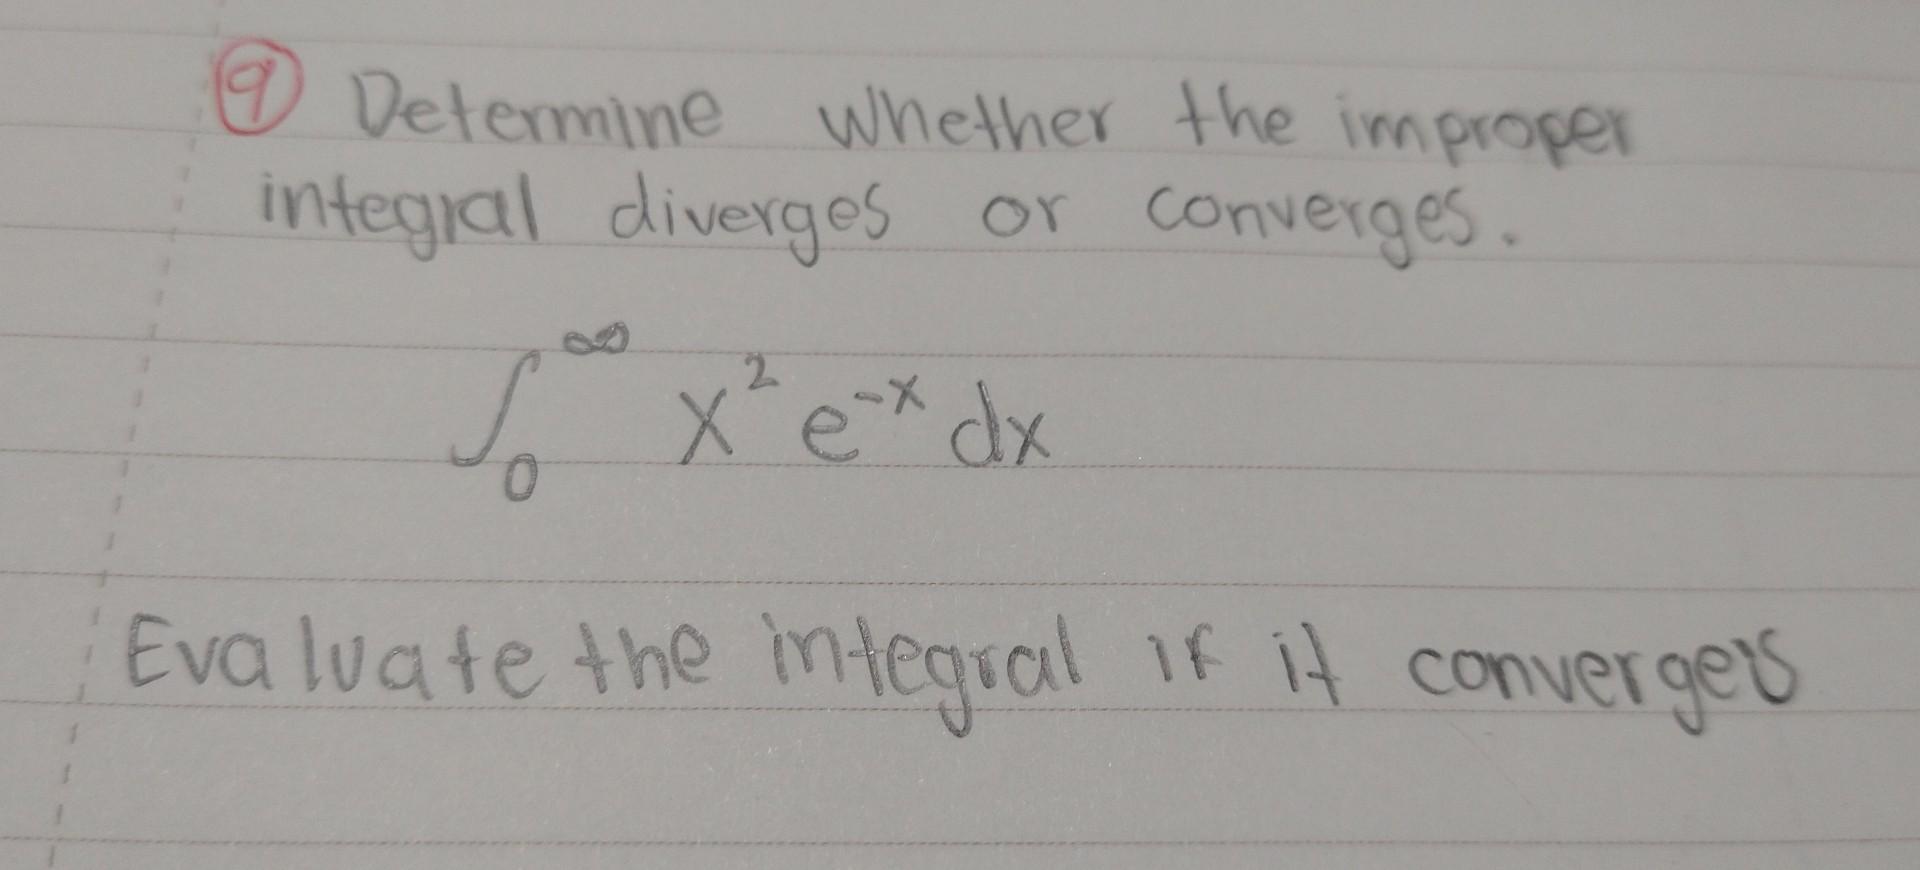 ⑨ Determine whether the improper
integral diverges or converges.
∫₀^∞ x² e⁻ˣ dx
Evaluate the integral if it converges